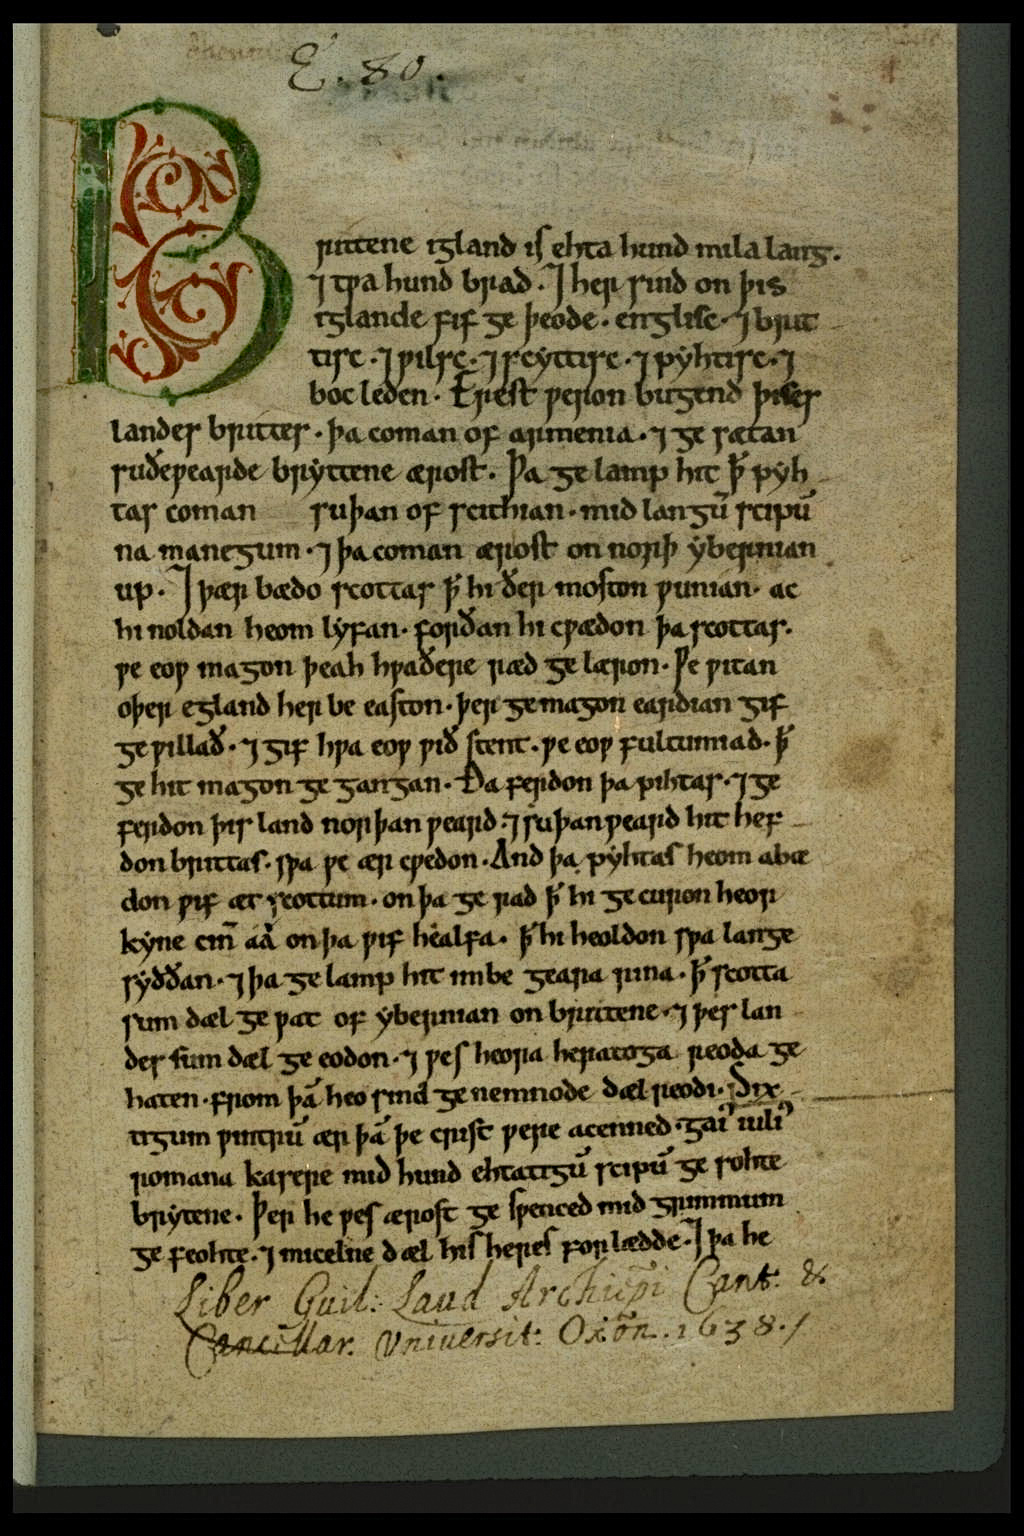 E. 80.
Brittene igland is ehta hund mila lang.
⁊ tƿa hund brad. ⁊ her sind on þis
iglande fif ge þeode. englisc. ⁊ brit
tisc. ⁊ ƿilsc. ⁊ scyttisc. ⁊ pyhtisc. ⁊
boc leden. Erest ƿeron bugend þises
landes brittes. þa coman of armenia. ⁊ ge sætan
suðeƿearde bryttene ærost. Þa ge lamp hit ꝥ pyh
tas coman suþan of scithian. mid langū scipū
na manegum. ⁊ þa coman ærost on norþ ybernian
up. ⁊ þær bædo scottas ꝥ hi ðer moston ƿunian. ac
hi noldan heom lyfan. forðan hi cƿædon þa scottas.
ƿe eoƿ magon þeah hƿaðere ræd ge læron. Ƿe ƿitan
oþer egland her be easton. þer ge magon eardian gif
ge ƿillað. ⁊ gif hƿa eoƿ ƿið stent. ƿe eoƿ fultumiad. ꝥ
ge hit magon ge gangan. Ða ferdon þa pihtas. ⁊ ge
ferdon þis land norþan ƿeard. ⁊ suþanƿeard hit hef
don brittas. sƿa ƿe ær cƿedon. And þa pyhtas heom abæ
don ƿif æt scottum. on þa ge rad ꝥ hi ge curon heor
kyne cin̄ aa on þa ƿif healfa. ꝥ hi heoldon sƿa lange
syððan. ⁊ þa ge lamp hit imbe geara rina. ꝥ scotta
sum dæl ge ƿat of ybernian on brittene. ⁊ þes lan
des sum dæl ge eodon. ⁊ ƿes heora heratoga reoda ge
haten. from þā heo sind ge nemnode dæl reodi. Six
tigum ƿintrū ær þā þe crist ƿere acenned. gai' iuli'
romana kasere mid hund ehtatigū scipū ge sohte
brytene. Þer he ƿes ærost ge sƿenced mid grimmum
ge feohte. ⁊ micelne dæl his heres forlædde. ⁊ þa he
Liber Guil: Laud Archiep̄i Cant. &
Cancellar. Vniuersit: Oxōn. 1638.